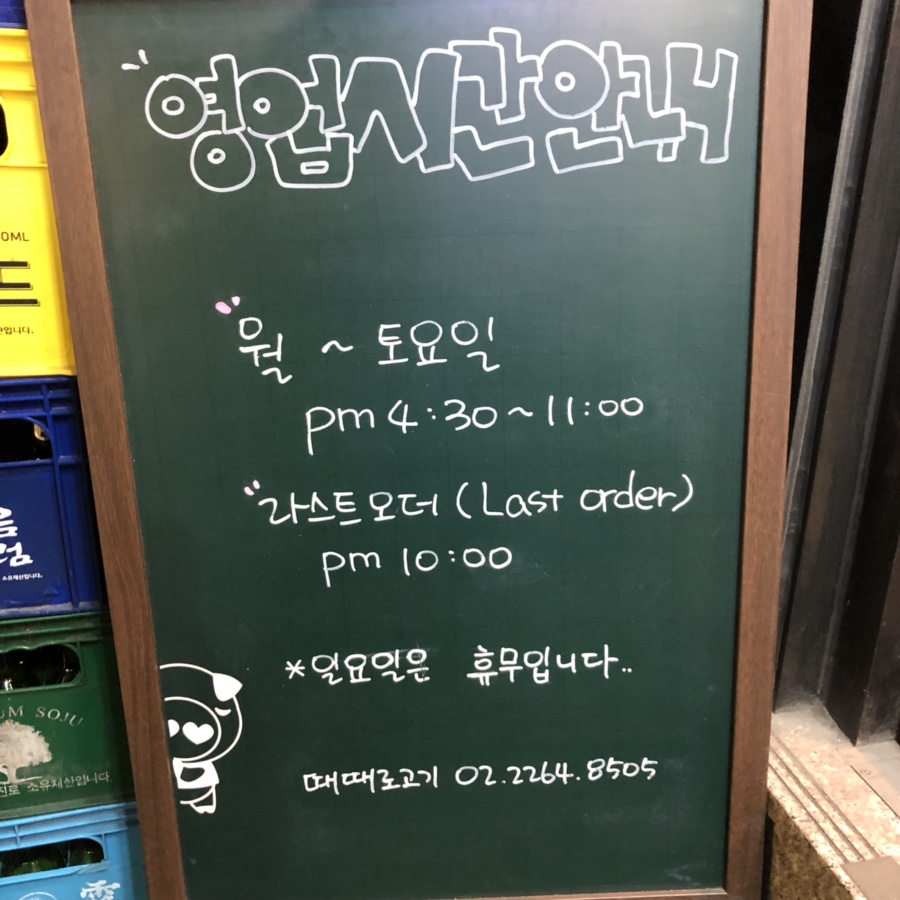 영업시간안내
월 ~ 토요일
pm 4:30~11:00
라스트오더 (Last order)
pm 10:00
*일요일은 휴무입니다..
때때로고기 02.2264.8505
0ML
드
산입니다.
음
럼
소유재산입니다.
UM SOJU
진로 소유재산입니다.